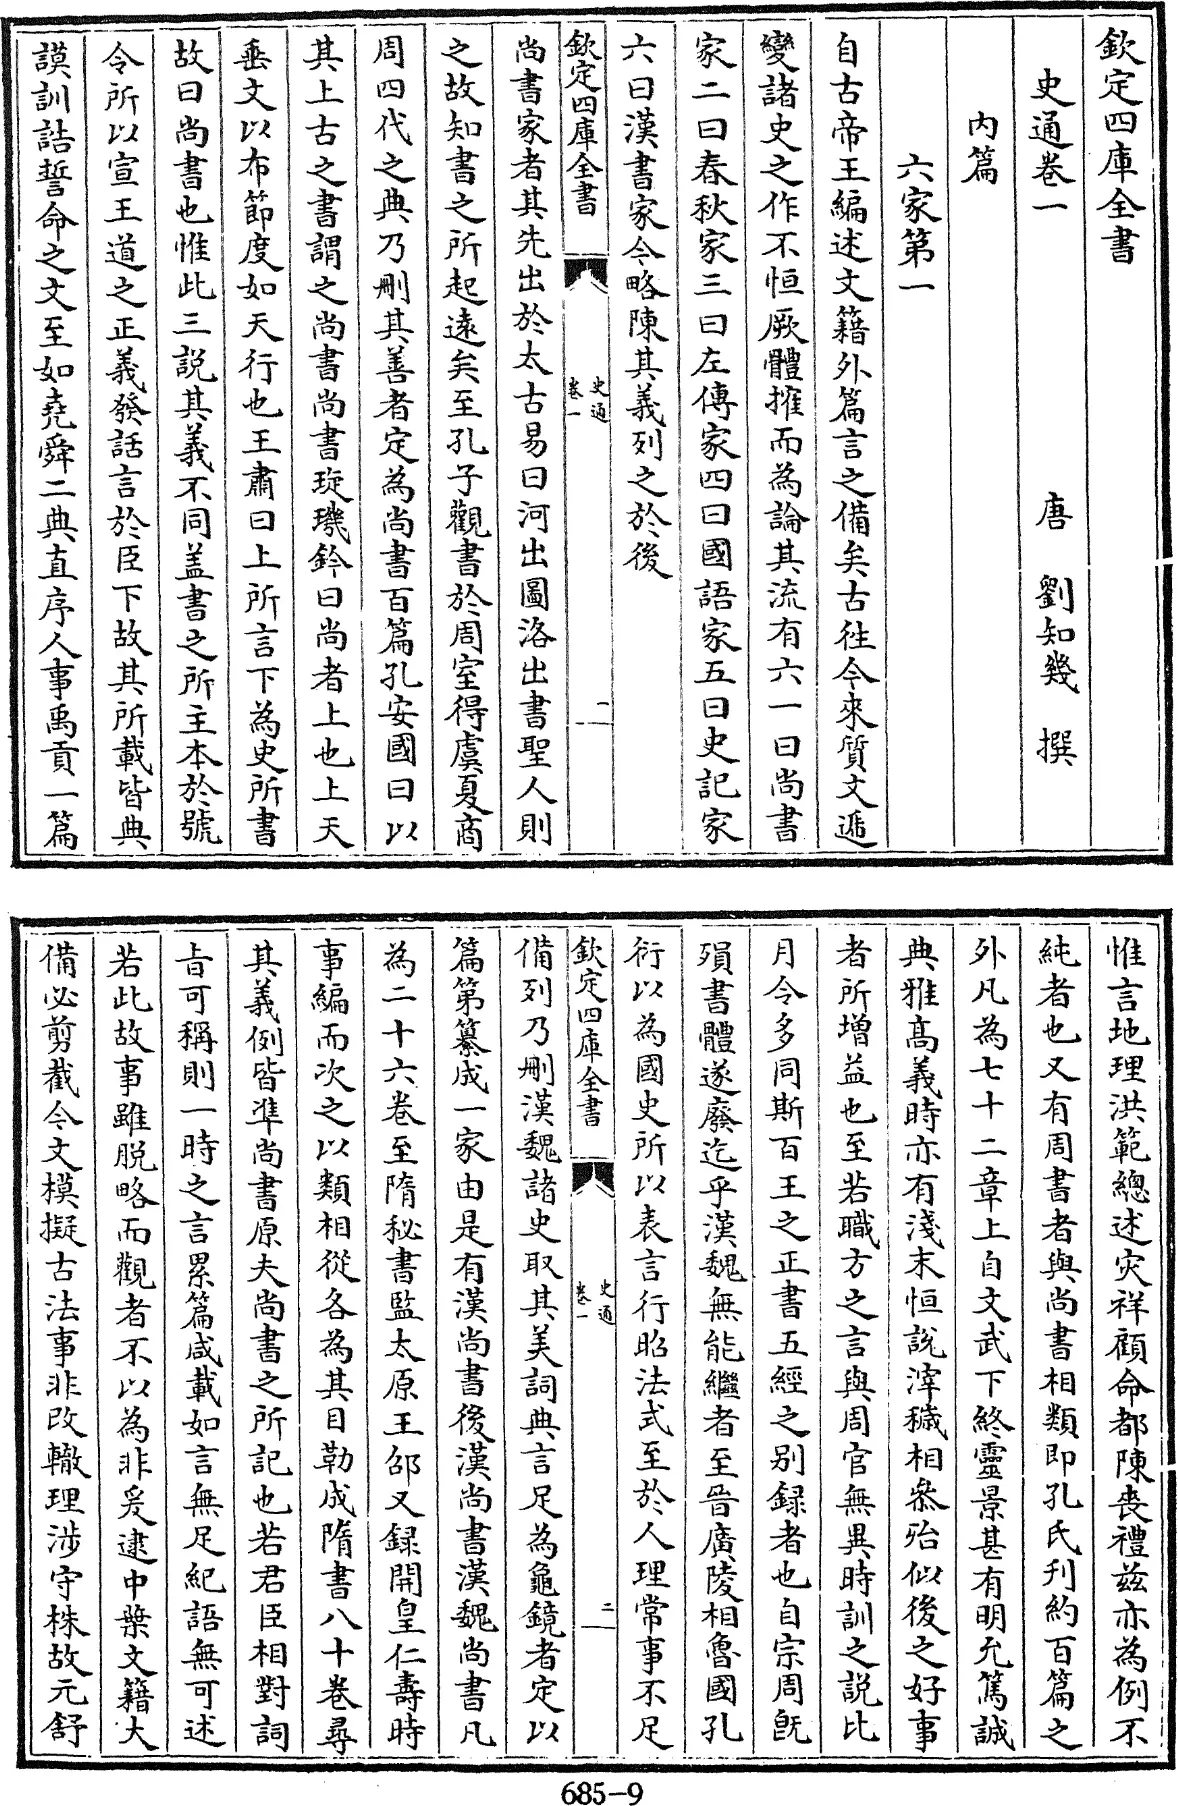 欽定四庫全書
史通卷一
唐 劉知幾 撰
內篇
六家第一
自古帝王編述文籍外篇言之備矣古往今來質文遞
變諸史之作不恒厥體搉而為論其流有六一曰尚書
家二曰春秋家三曰左傳家四曰國語家五曰史記家
六曰漢書家今略陳其義列之於後
欽定四庫全書
史通
卷一
一
尚書家者其先出於太古易曰河出圖洛出書聖人則
之故知書之所起遠矣至孔子觀書於周室得虞夏商
周四代之典乃刪其善者定為尚書百篇孔安國曰以
其上古之書謂之尚書尚書琁璣鈐曰尚者上也上天
垂文以布節度如天行也王肅曰上所言下為史所書
故曰尚書也惟此三説其義不同盖書之所主本於號
令所以宣王道之正義發話言於臣下故其所載皆典
謨訓誥誓命之文至如堯舜二典直序人事禹貢一篇
惟言地理洪範總述灾祥顧命都陳喪禮兹亦為例不
純者也又有周書者與尚書相類即孔氏刋約百篇之
外凡為七十二章上自文武下終靈景甚有明允篤誠
典雅髙義時亦有淺末恒説滓穢相叅殆似後之好事
者所增益也至若職方之言與周官無異時訓之説比
月令多同斯百王之正書五經之别録者也自宗周既
殞書體遂廢迄乎漢魏無能繼者至晉廣陵相魯國孔
衍以為國史所以表言行昭法式至於人理常事不足
欽定四庫全書
史通
卷一
二
備列乃刪漢魏諸史取其美詞典言足為龜鏡者定以
篇第纂成一家由是有漢尚書後漢尚書漢魏尚書凡
為二十六卷至隋秘書監太原王邵又録開皇仁壽時
事編而次之以類相從各為其目勒成隋書八十卷尋
其義例皆準尚書原夫尚書之所記也若君臣相對詞
旨可稱則一時之言累篇咸載如言無足紀語無可述
若此故事雖脱略而觀者不以為非爰逮中葉文籍大
備必剪截今文模擬古法事非改轍理涉守株故元舒
685-9